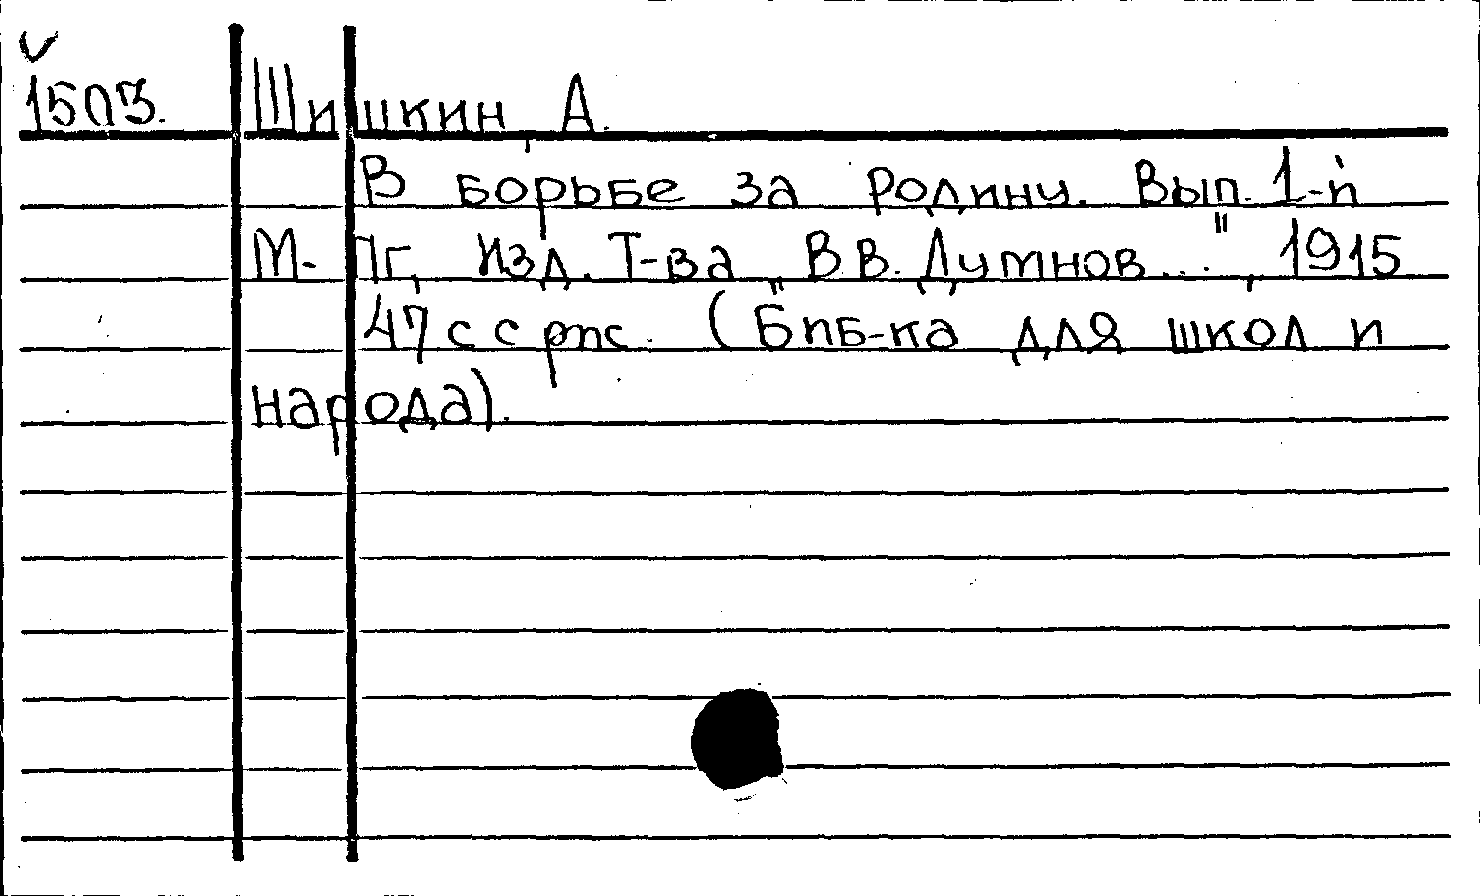 1503. Шишкин А.
В борьбе за Родину. Вып. 1-й
М.-Пг, Изд. Т-ва „В.В. Думнов...", 1915
47 с с рис. (Биб-ка для школ и
народа).